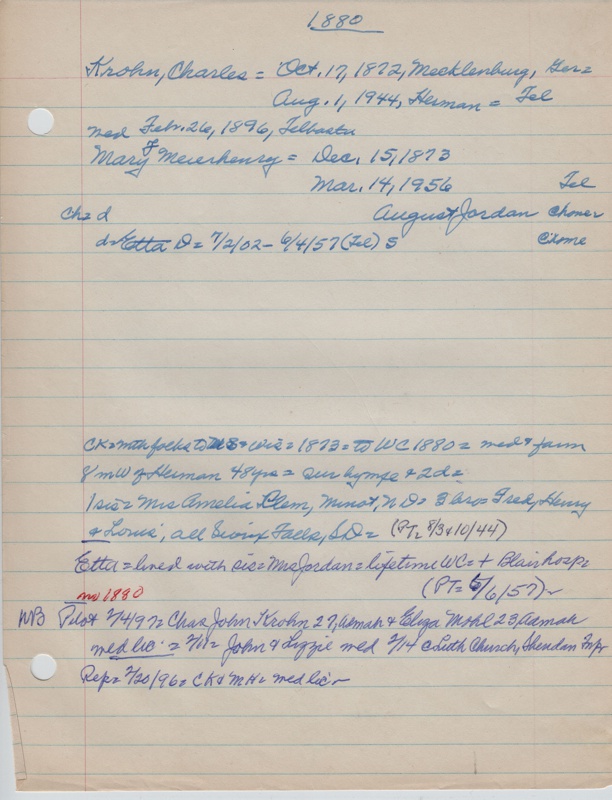 1880
Krohn, Charles = Oct. 17, 1872, Mecklenburg, Ger=
Aug. 1, 1944, Herman = Tel
med Feb. 26, 1896, Telbasta
Mary F Meierhenry = Dec. 15, 1873
Mar. 14, 1956 Tel
Ch= d August Jordan
d= Etta D = 7/2/02 - 6/4/57 (Tel) S
CK = with folks to US + Wis = 1873 = to WC 1880 = med + farm
8 m W of Herman 48 yrs = sur by mps + 2d =
1 sis = Mrs Amelia Plem, Minot, ND = 3 bro = Fred, Henry
+ Louis, all Sioux Falls, SD = (PT = 8/3+10/44)
Etta = lived with sis = Mrs Jordan = lifetime WC = + Blair hosp =
(PT = 6/6/57)
no 1880
NB Pilot 2/4/97 = Chas John Krohn 27, & Eliza Mohl 23,
med lic = 2/11 = John & Lizzie med 2/14 c Luth Church, Sheridan Twp
Rep = 2/20/96 = CK + MM = med lic